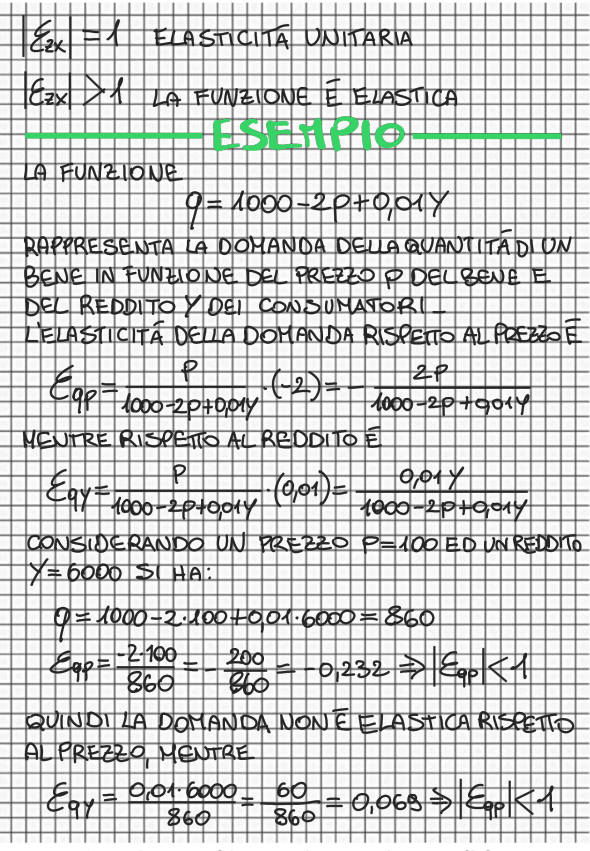 |Ɛzx| = 1 ELASTICITÀ UNITARIA
|Ɛzx| > 1 LA FUNZIONE È ELASTICA
ESEMPIO
LA FUNZIONE
q = 1000 - 2p + 0,01Y
RAPPRESENTA LA DOMANDA DELLA QUANTITÀ DI UN
BENE IN FUNZIONE DEL PREZZO p DEL BENE E
DEL REDDITO Y DEI CONSUMATORI_
L'ELASTICITÀ DELLA DOMANDA RISPETTO AL PREZZO È
Ɛqp = p / (1000-2p+0,01Y) · (-2) = - 2p / (1000-2p+0,01Y)
MENTRE RISPETTO AL REDDITO È
ƐqY = p / (1000-2p+0,01Y) · (0,01) = 0,01Y / (1000-2p+0,01Y)
CONSIDERANDO UN PREZZO P=100 ED UN REDDITO
Y=6000 SI HA:
q = 1000-2·100+0,01·6000 = 860
Ɛqp = -2·100/860 = - 200/860 = -0,232 ⇒ |Ɛqp| < 1
QUINDI LA DOMANDA NON È ELASTICA RISPETTO
AL PREZZO, MENTRE
ƐqY = 0,01·6000/860 = 60/860 = 0,069 ⇒ |Ɛqp| < 1